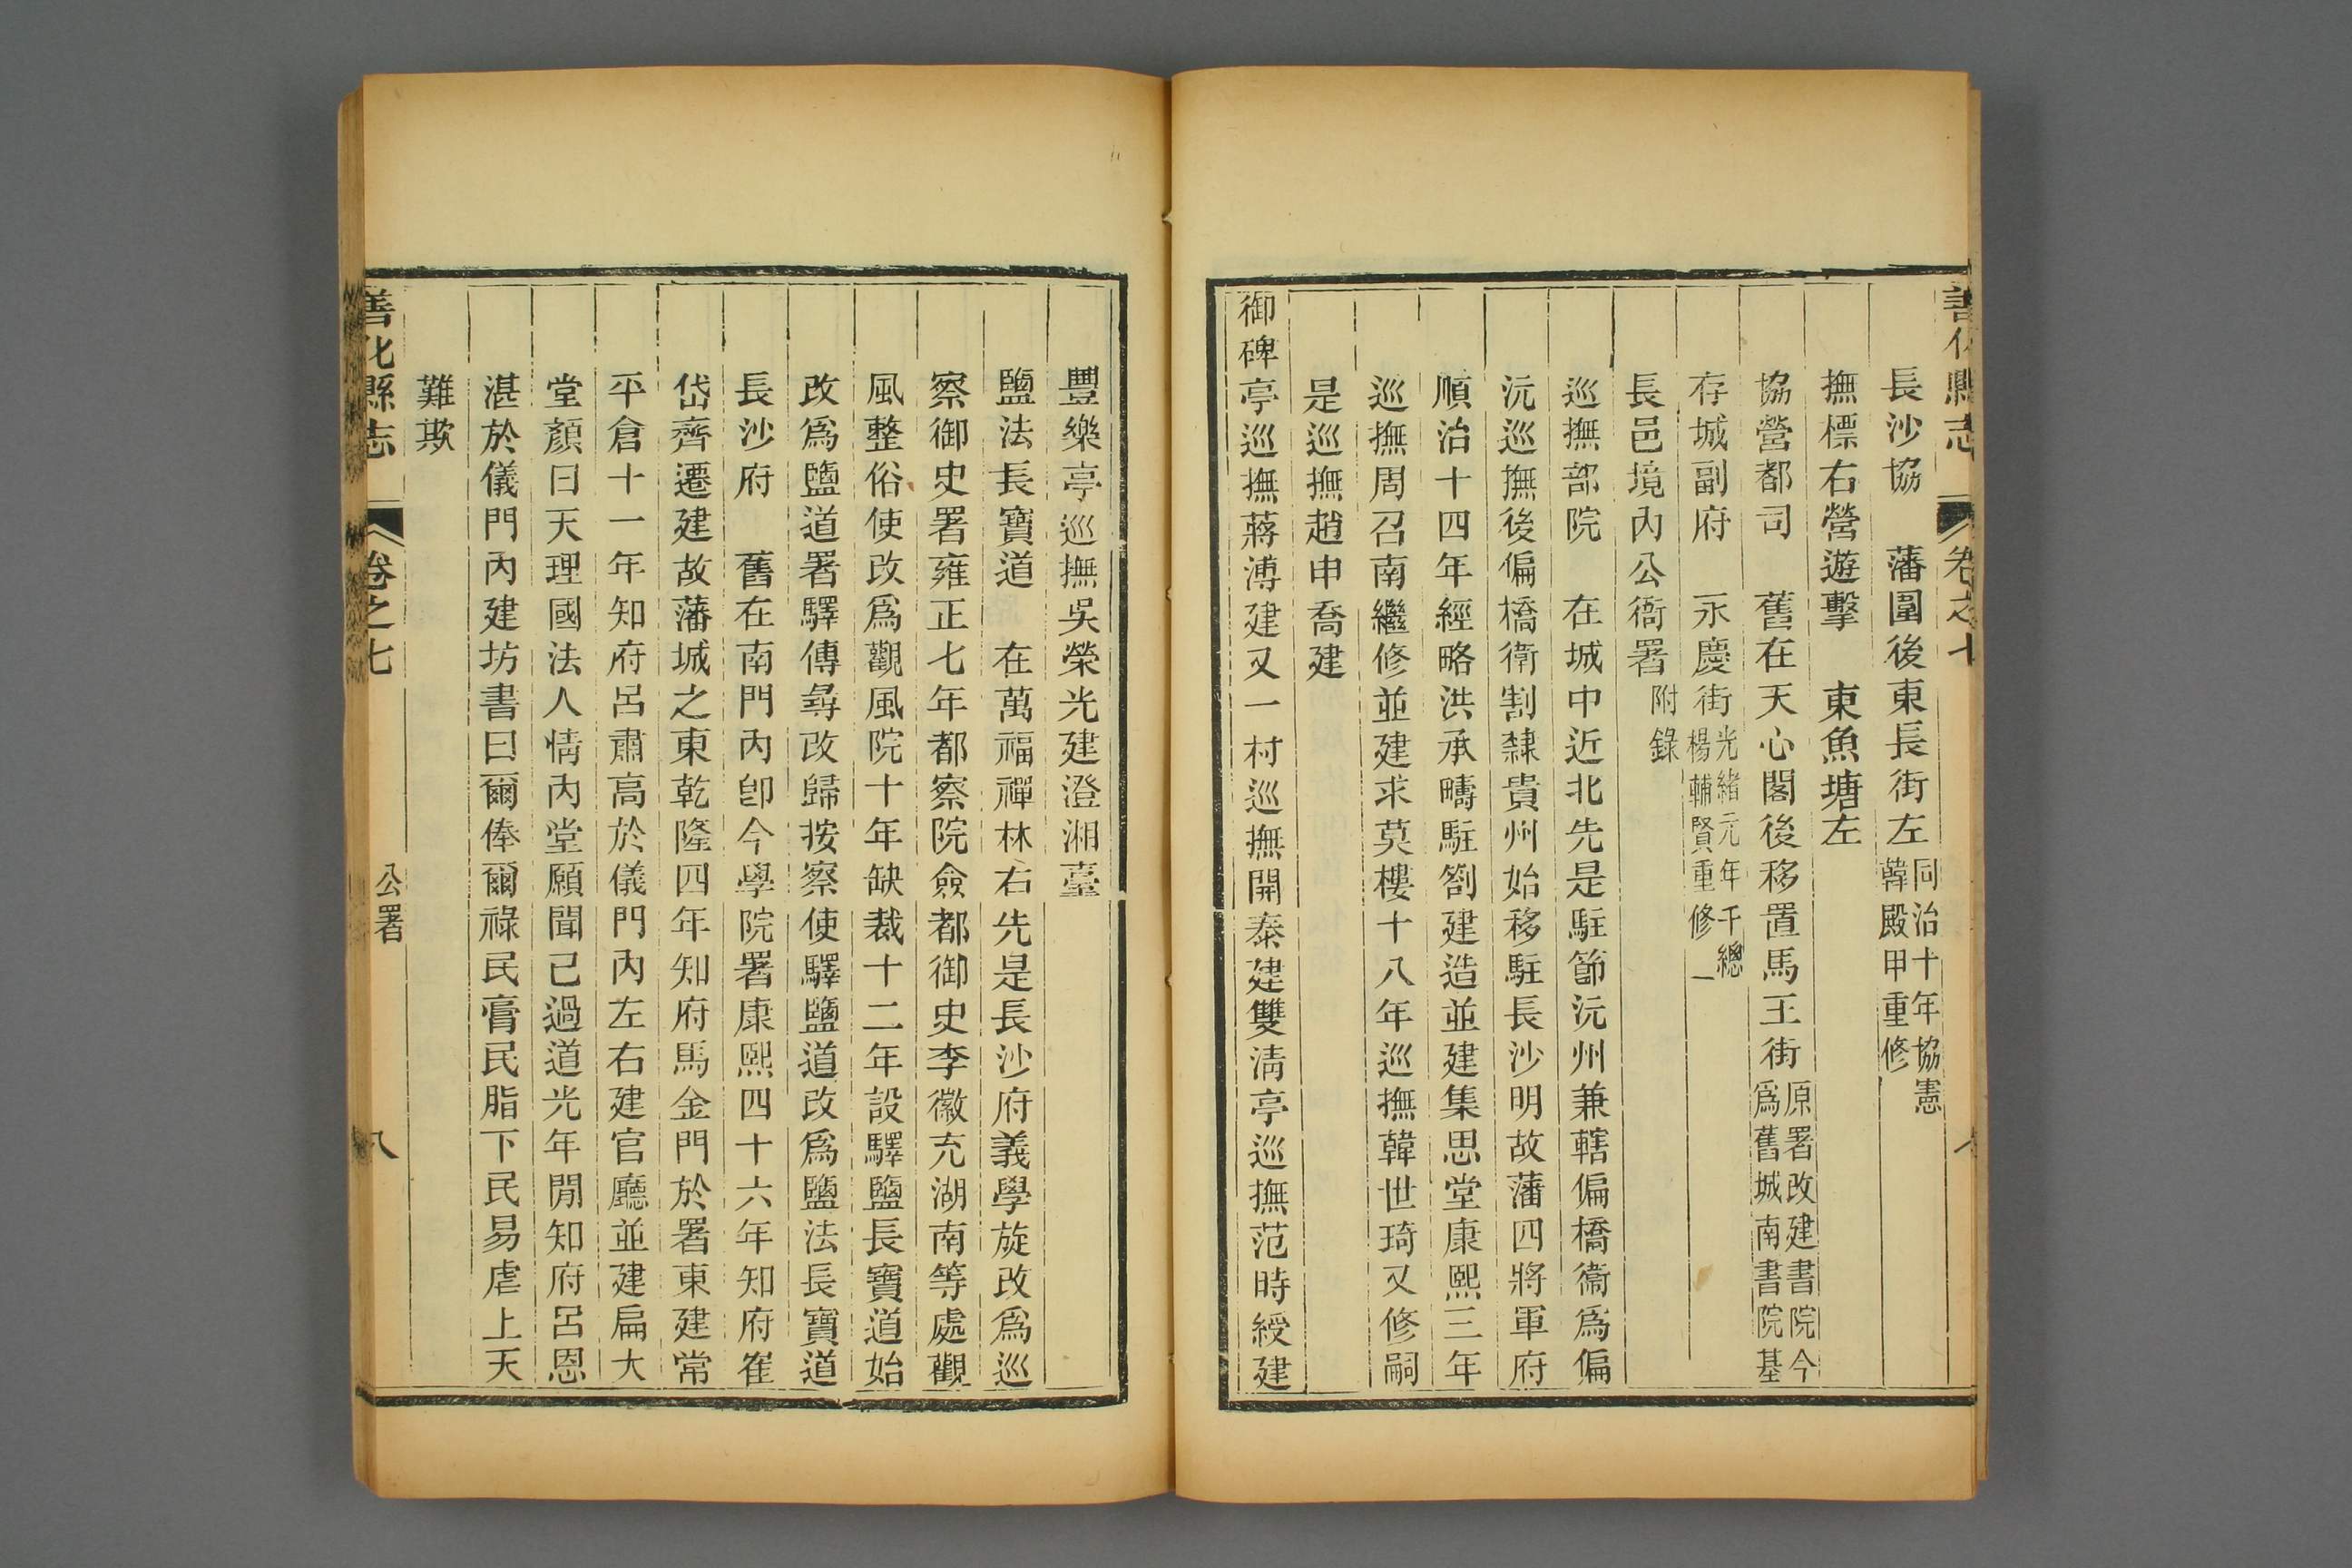 善化縣志 卷之七
長沙協　藩圍後東長街左同治十年協憲韓殿甲重修
撫標右營遊擊　東魚塘左
協營都司　舊在天心閣後移置馬王街原署改建書院今爲舊城南書院基
存城副府　永慶街光緒元年千總楊輔賢重修
長邑境內公衙署附錄
巡撫部院　在城中近北先是駐節沅州兼轄偏橋衞爲偏
沅巡撫後偏橋衛割隸貴州始移駐長沙明故藩四將軍府
順治十四年經略洪承疇駐劄建造並建集思堂康熙三年
巡撫周召南繼修並建求莫樓十八年巡撫韓世琦又修嗣
是巡撫趙申喬建
御碑亭巡撫蔣溥建又一村巡撫開泰建雙淸亭巡撫范時綬建
豐樂亭巡撫吳榮光建澄湘臺
鹽法長寶道　在萬福禪林右先是長沙府義學旋改爲巡
察御史署雍正七年都察院僉都御史李徽充湖南等處觀
風整俗使改爲觀風院十年缺裁十二年設驛鹽長寶道始
改爲鹽道署驛傳尋改歸按察使驛鹽道改爲鹽法長寶道
長沙府　舊在南門內卽今學院署康熙四十六年知府崔
岱齊遷建故藩城之東乾隆四年知府馬金門於署東建常
平倉十一年知府呂肅高於儀門內左右建官廳並建扁大
堂顏曰天理國法人情內堂願聞已過道光年閒知府呂恩
湛於儀門內建坊書曰爾俸爾祿民膏民脂下民易虐上天
難欺
善化縣志 卷之七 公署 八